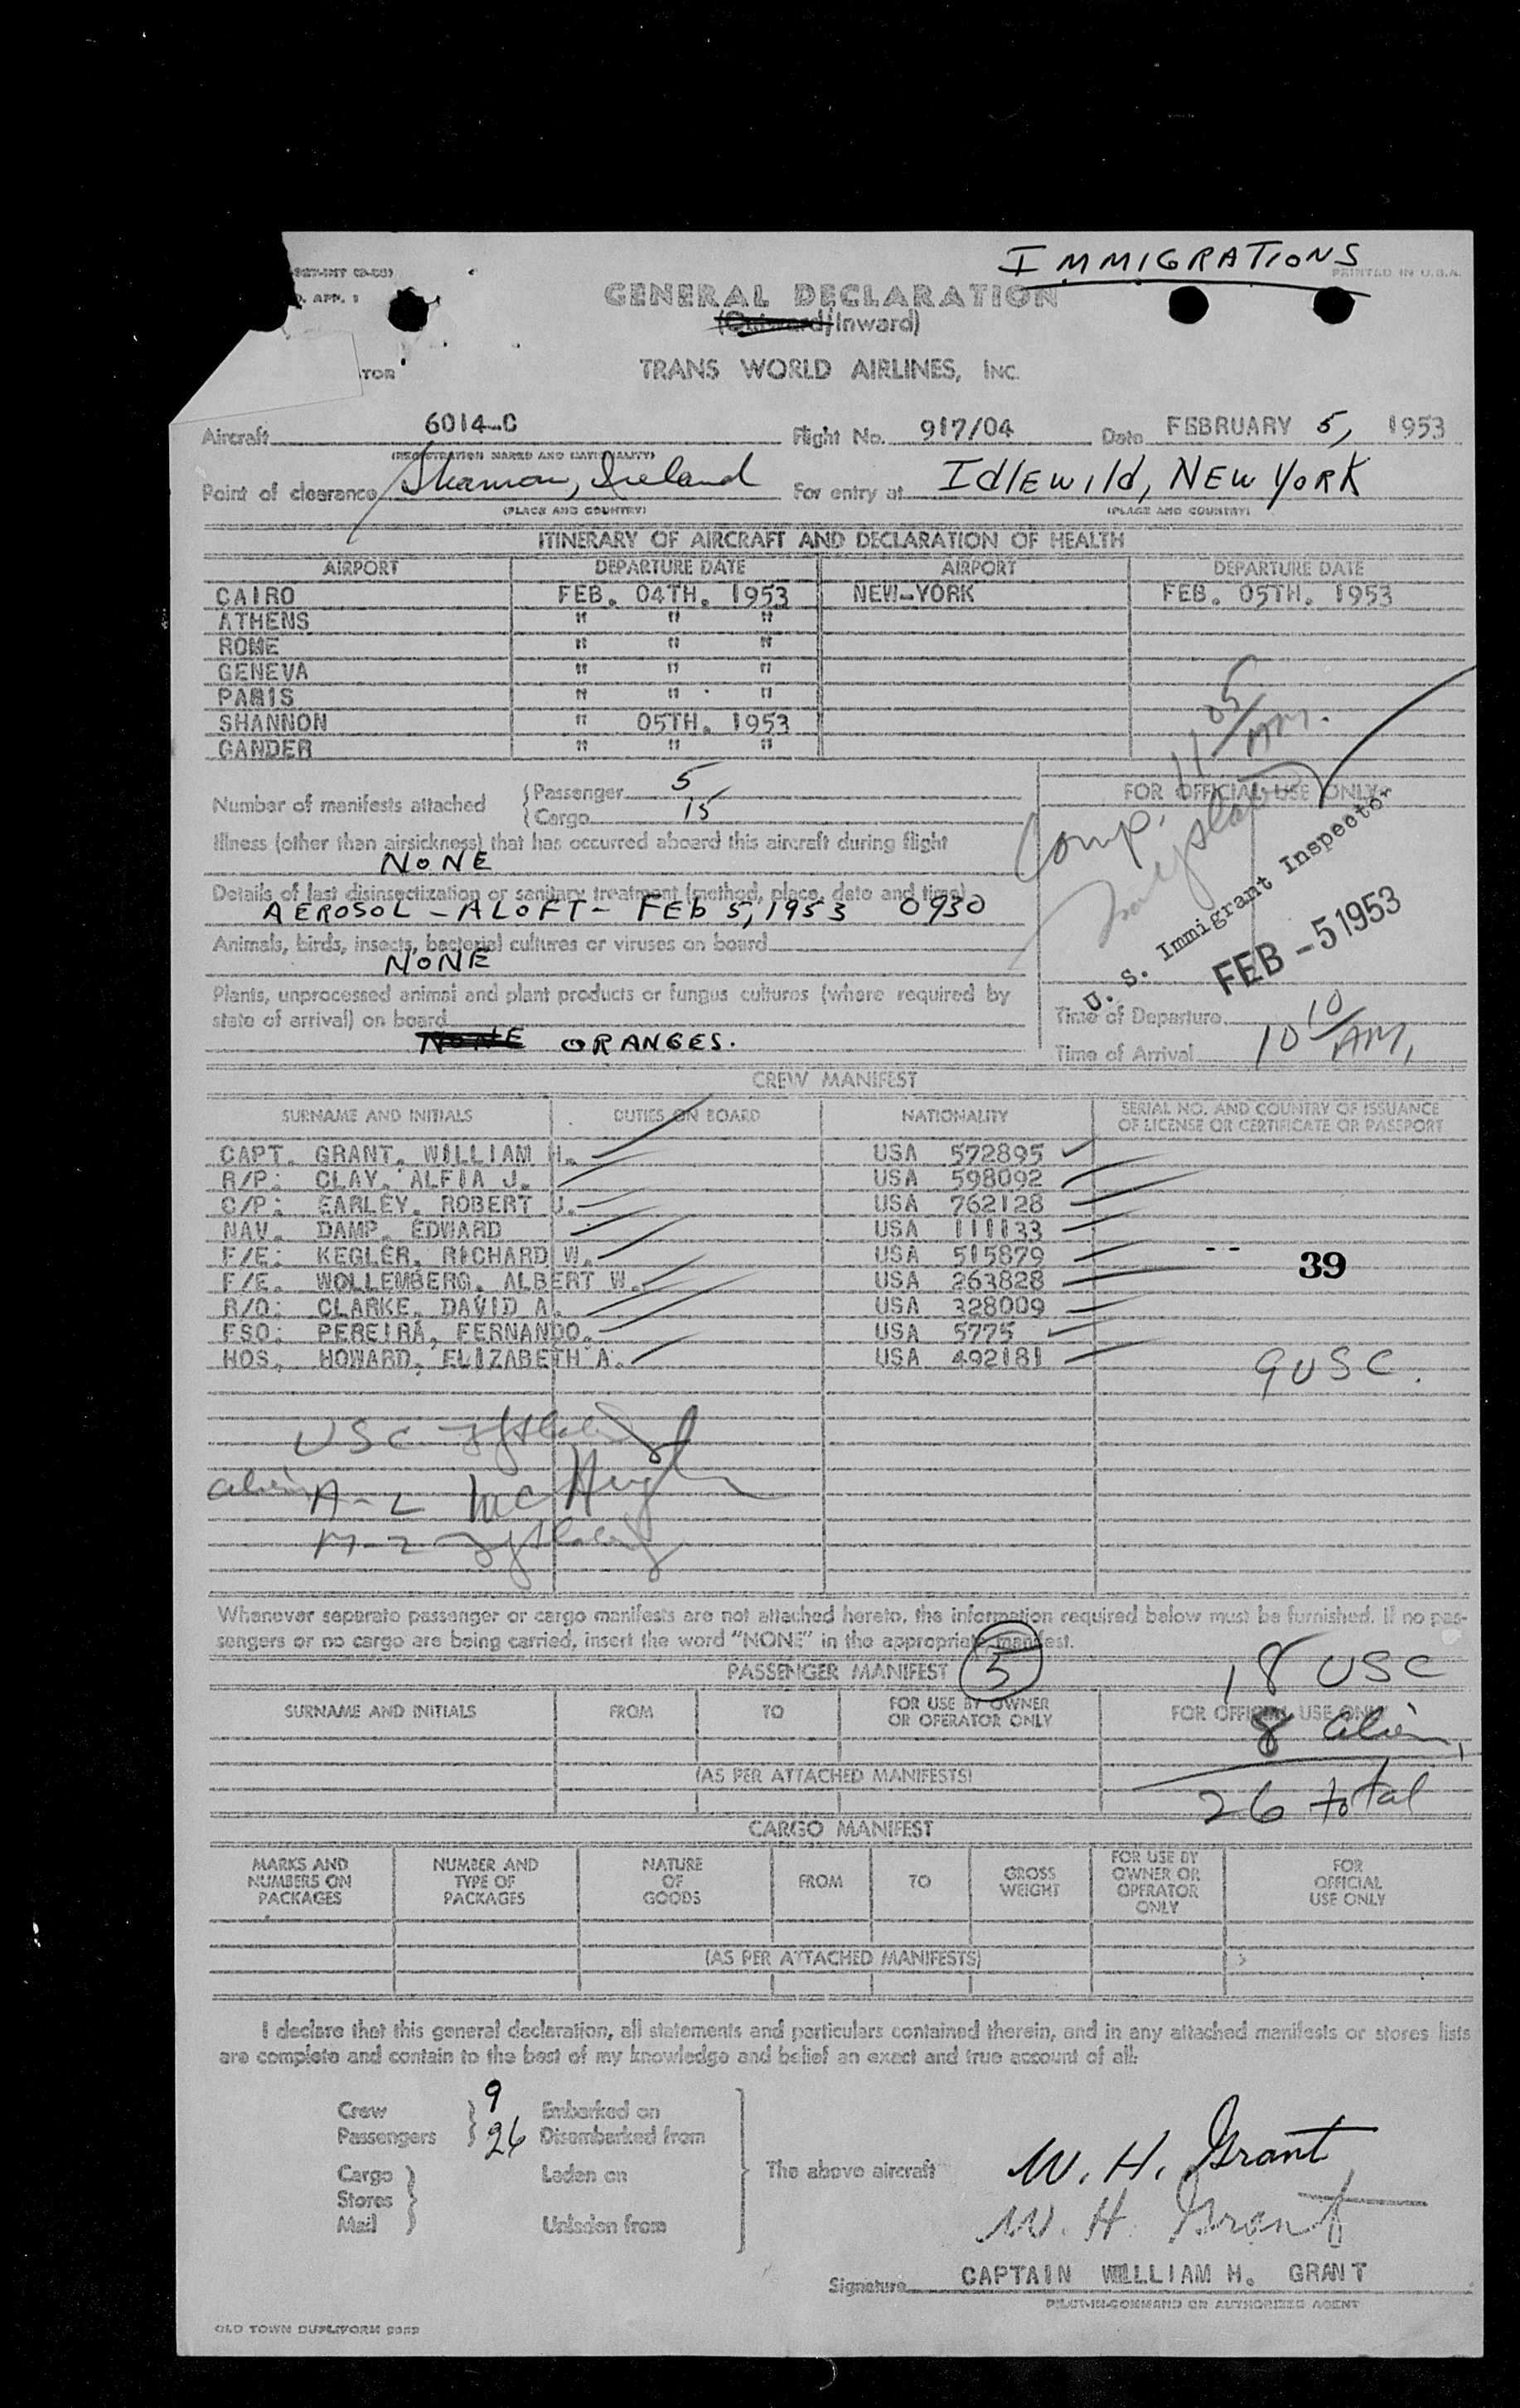 IMMIGRATIONS
PRINTED IN U.S.A.
GENERAL DECLARATION
(Outward/Inward)
TOR
TRANS WORLD AIRLINES, INC.
Aircraft 6014-C Flight No. 917/04 Date FEBRUARY 5, 1953
(REGISTRATION MARKS AND NATIONALITY)
Point of clearance Shannon, Ireland For entry at IdlEwild, NEW YORK
(PLACE AND COUNTRY) (PLACE AND COUNTRY)
ITINERARY OF AIRCRAFT AND DECLARATION OF HEALTH
AIRPORT DEPARTURE DATE AIRPORT DEPARTURE DATE
CAIRO FEB. 04TH. 1953 NEW-YORK FEB. 05TH. 1953
ATHENS " " "
ROME " " "
GENEVA " " "
PARIS " " "
SHANNON " 05TH. 1953
GANDER " " "
Comp. 11 05/AM.
Number of manifests attached { Passenger 5
{ Cargo 15
FOR OFFICIAL USE ONLY
Illness (other than airsickness) that has occurred aboard this aircraft during flight
NONE
Details of last disinsectization or sanitary treatment (method, place, date and time)
AEROSOL - ALOFT - FEB 5, 1953 0930
U. S. Immigrant Inspector
FEB -5 1953
Animals, birds, insects, bacterial cultures or viruses on board
NONE
Plants, unprocessed animal and plant products or fungus cultures (where required by
state of arrival) on board
NONE ORANGES.
Time of Departure
Time of Arrival 10 10/AM.
CREW MANIFEST
SURNAME AND INITIALS DUTIES ON BOARD NATIONALITY SERIAL NO. AND COUNTRY OF ISSUANCE
OF LICENSE OR CERTIFICATE OR PASSPORT
CAPT. GRANT, WILLIAM H. USA 572895
R/P: CLAY, ALFIA J. USA 598092
C/P: EARLEY, ROBERT J. USA 762128
NAV. DAMP, EDWARD USA 111133
F/E: KEGLER, RICHARD W. USA 515879
39
F/E. WOLLEMBERG, ALBERT W. USA 263828
R/O: CLARKE, DAVID A. USA 328009
FSO: PEREIRA, FERNANDO. USA 5775
HOS. HOWARD, ELIZABETH A. USA 492181
9 USC.
USC
alien A-L McHugh
M-Z
Whenever separate passenger or cargo manifests are not attached hereto, the information required below must be furnished. If no pas-
sengers or no cargo are being carried, insert the word "NONE" in the appropriate manifest.
PASSENGER MANIFEST 5
18 USC
SURNAME AND INITIALS FROM TO FOR USE BY OWNER
OR OPERATOR ONLY FOR OFFICIAL USE ONLY
8 alien
(AS PER ATTACHED MANIFESTS)
26 total
CARGO MANIFEST
MARKS AND
NUMBERS ON
PACKAGES
NUMBER AND
TYPE OF
PACKAGES
NATURE
OF
GOODS
FROM
TO
GROSS
WEIGHT
FOR USE BY
OWNER OR
OPERATOR
ONLY
FOR
OFFICIAL
USE ONLY
(AS PER ATTACHED MANIFESTS)
I declare that this general declaration, all statements and particulars contained therein, and in any attached manifests or stores lists
are complete and contain to the best of my knowledge and belief an exact and true account of all:
Crew 9 Embarked on
Passengers 26 Disembarked from
Cargo Laden on
Stores
Mail Unladen from
The above aircraft
W. H. Grant
W. H. Grant
Signature CAPTAIN WILLLIAM H. GRANT
PILOT-IN-COMMAND OR AUTHORIZED AGENT
OLD TOWN DUPLIFORM